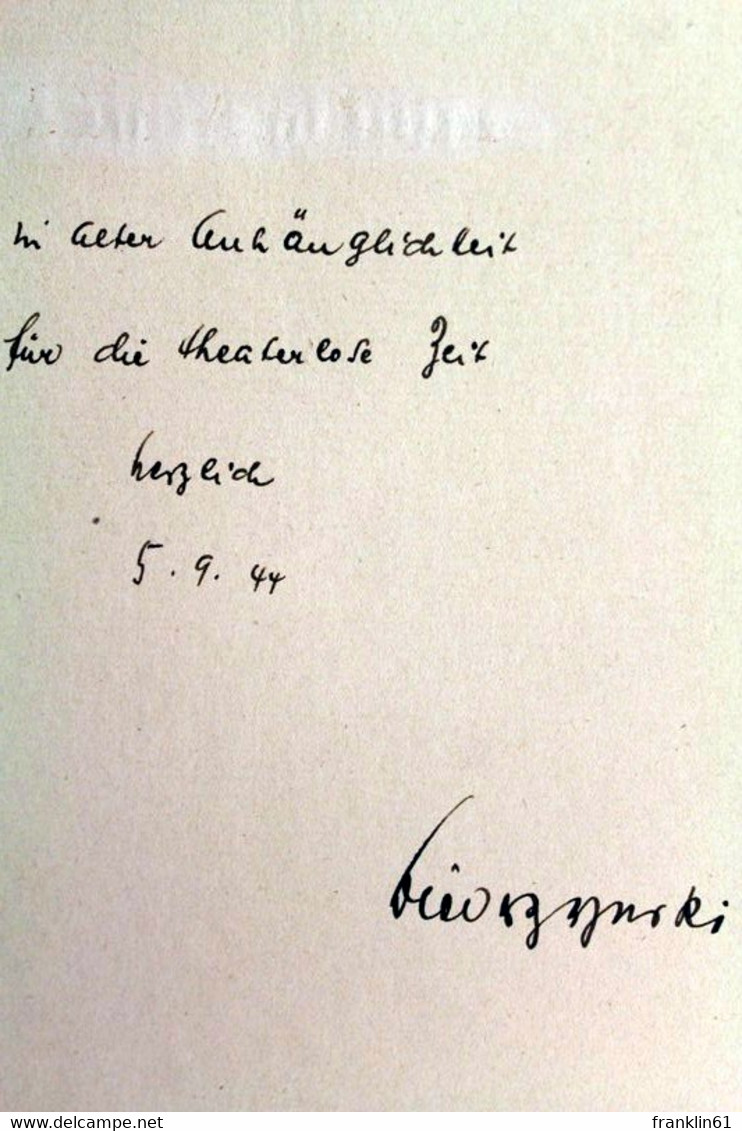 In alter Anhänglichkeit
für die theaterlose Zeit
herzlich
5.9.44
www.delcampe.net
franklin61